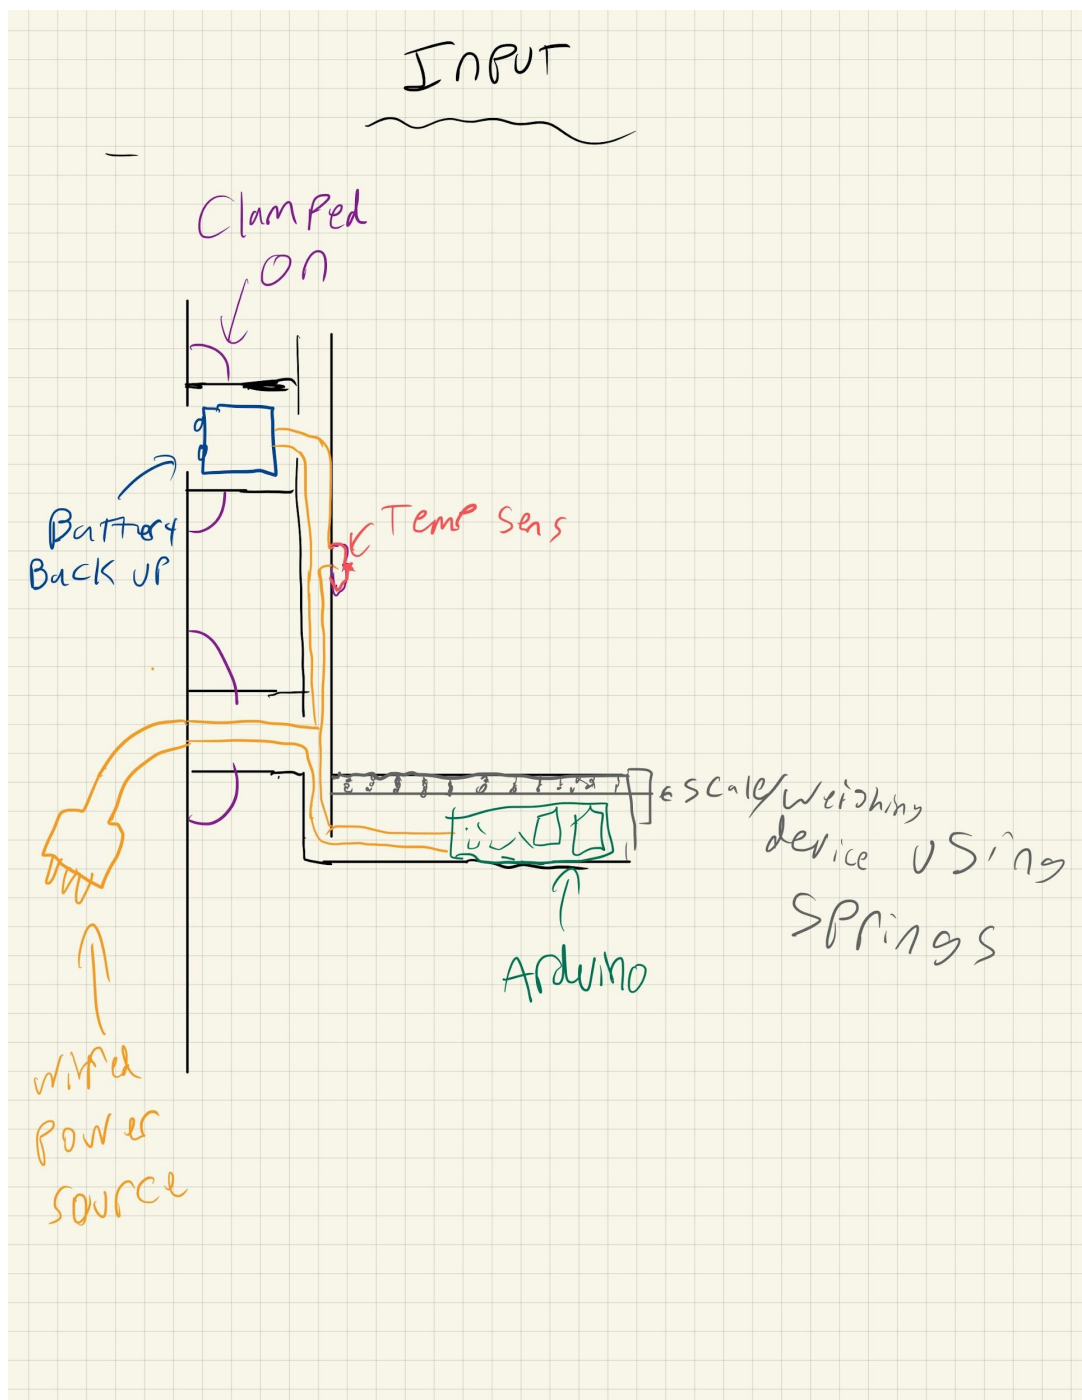 INPUT
Clamped
on
Battery
Back up
Temp Sens
scale/weighing
device using
springs
Arduino
wired
power
source